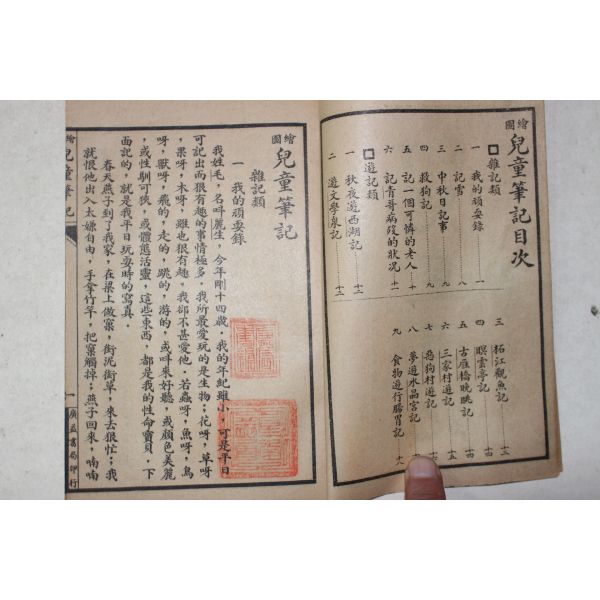 繪圖兒童筆記目次
□雜記類
一 我的頑耍錄……一
二 記雪……六
三 中秋日記事……九
四 救狗記……九
五 記一個可憐的老人……十
六 記青哥病歿的狀況……十一
□遊記類
一 秋夜遊西湖記……十二
二 遊文學泉記……十二
三 柘江觀魚記……十三
四 暝雲亭記……十四
五 古雁橋晚眺記……十四
六 三家村遊記……十五
七 惡狗村遊記
八 夢遊水晶宮記
九 食物遊行腸胃記……十八
繪圖兒童筆記
雜記類
一 我的頑耍錄
我姓毛，名呌麗生，今年剛十四歲．我的年紀雖小，可是平日
可記出而狠有趣的事情極多．我所最愛玩的是生物；花呀，草呀
，果呀，木呀，雖也很有趣，我卻不甚愛他．若蟲呀，魚呀，鳥
呀，獸呀，飛的，走的，跳的，游的，或呌來好聽，或顏色美麗
，或性馴可狎，或體態活靈，這些東西，都是我的性命寶貝．下
面記的，就是我平日玩耍時的寫真．
春天燕子到了我家，在梁上做窠，銜泥銜草，來去狠忙；我
就恨他出入太嫌自由，手拿竹竿，把窠觸掉；燕子回來，喃喃
繪圖兒童筆記
一
廣益書局印行